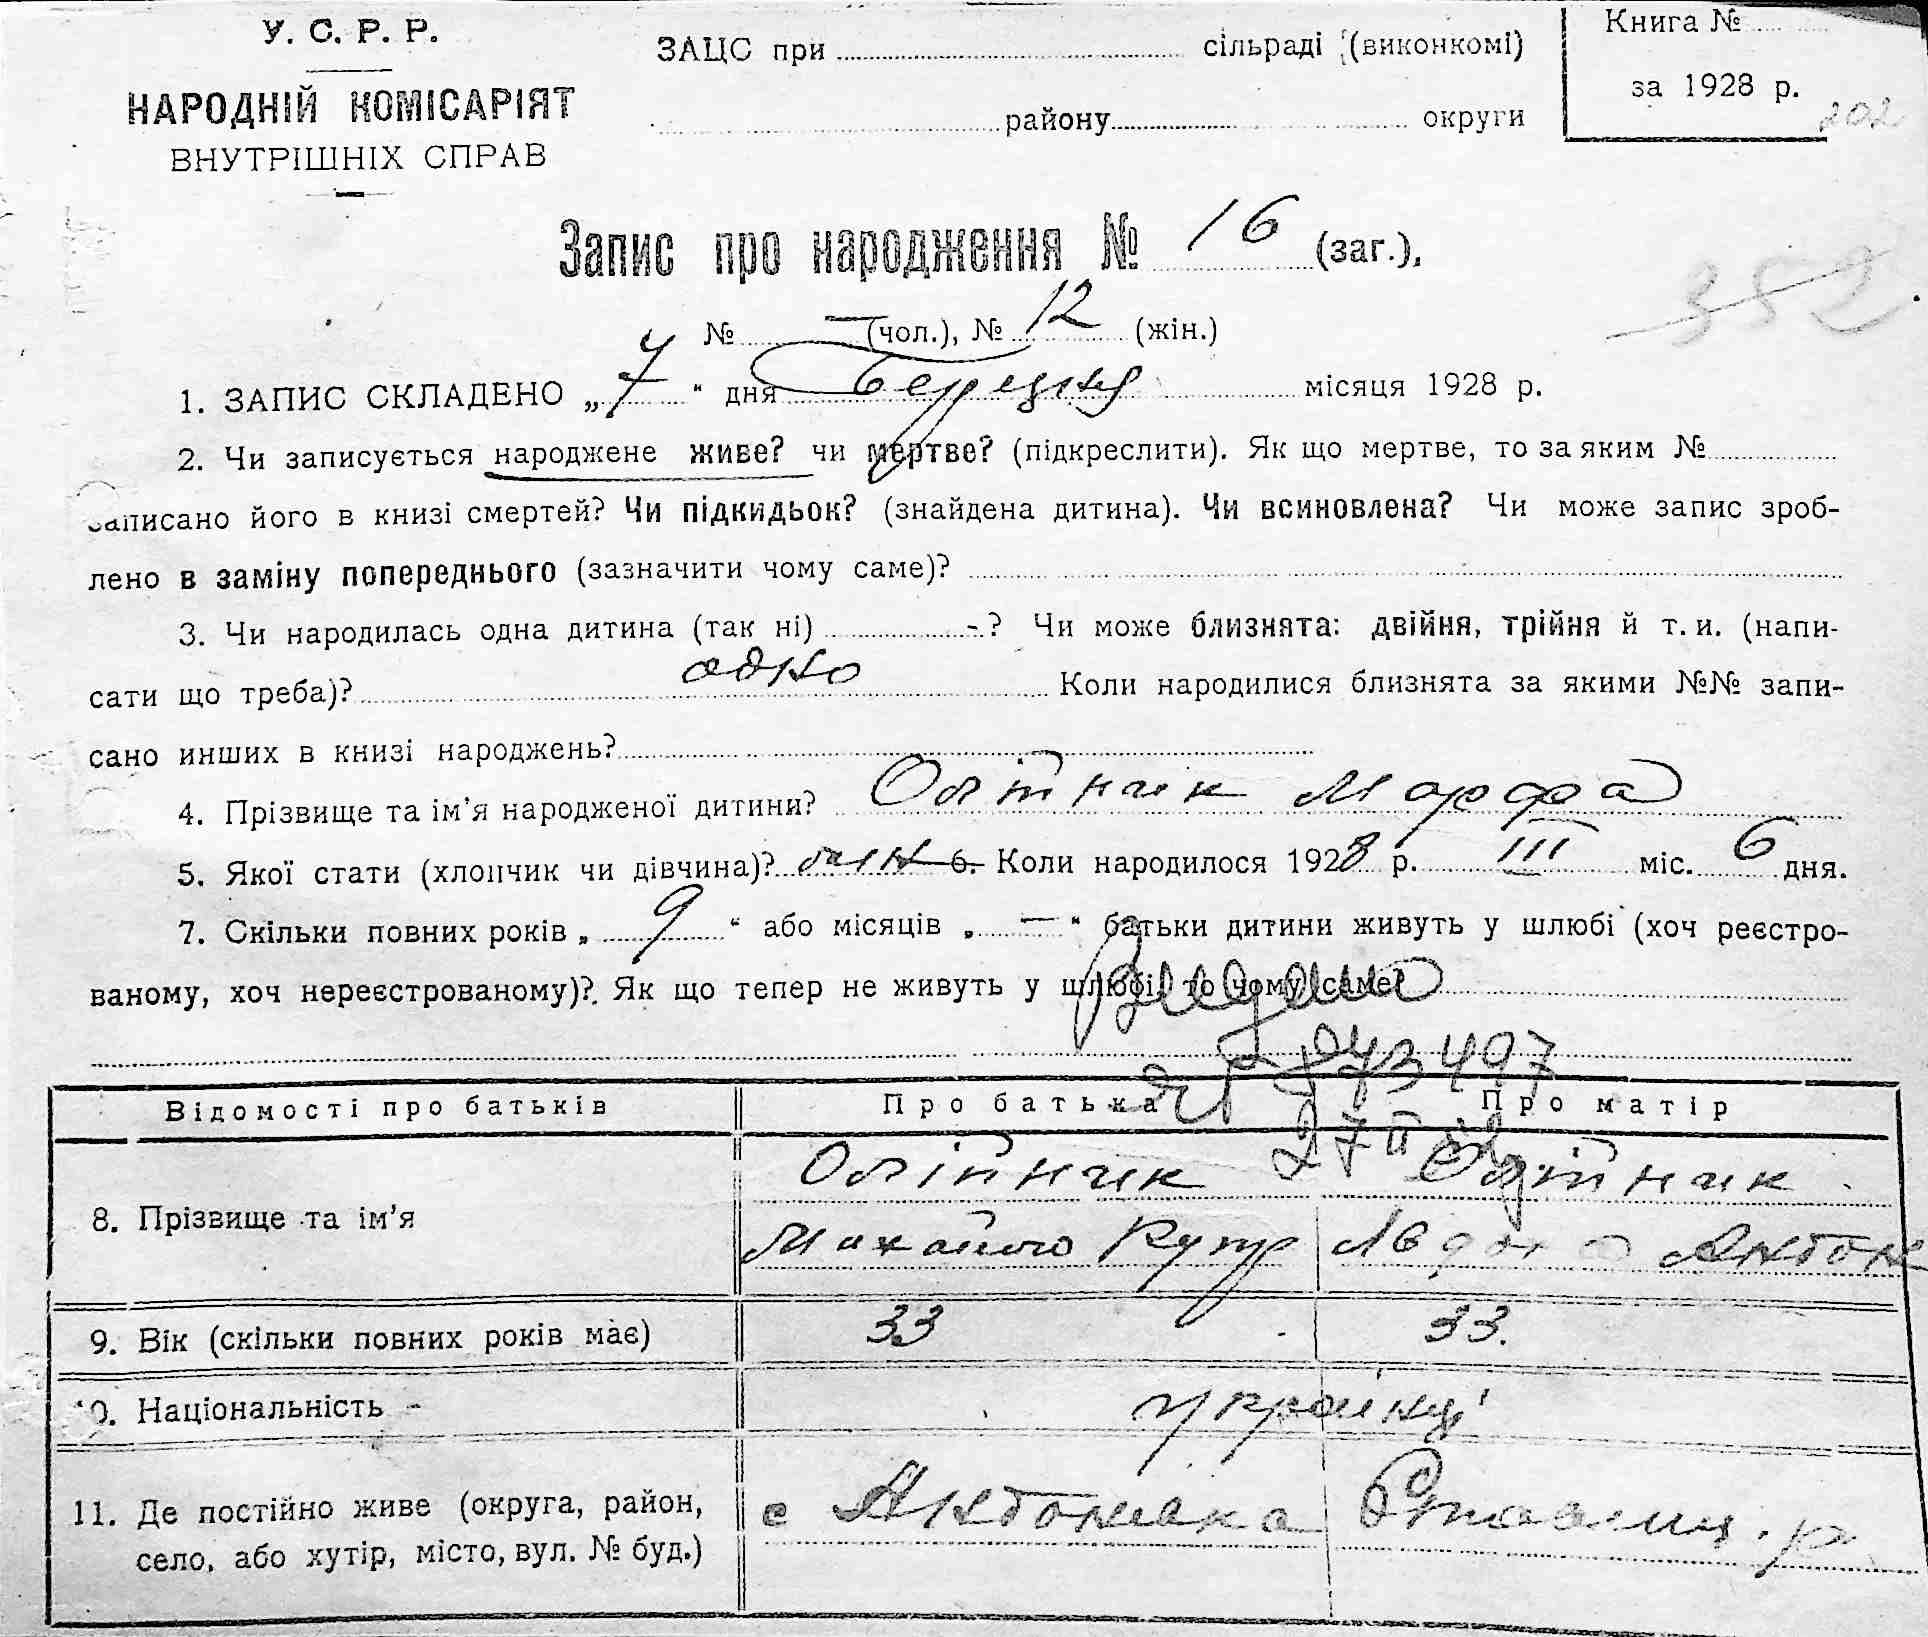 У. С. Р. Р.
НАРОДНІЙ КОМІСАРІЯТ
ВНУТРІШНІХ СПРАВ
ЗАЦС при сільраді (виконкомі)
району округи
Книга №
за 1928 р.
202
Запис про народження № 16 (заг.),
352
№ — (чол.), № 12 (жін.)
1. ЗАПИС СКЛАДЕНО „7" дня Березня місяця 1928 р.
2. Чи записується народжене живе? чи мертве? (підкреслити). Як що мертве, то за яким №
записано його в книзі смертей? Чи підкидьок? (знайдена дитина). Чи всиновлена? Чи може запис зроб-
лено в заміну попереднього (зазначити чому саме)?
3. Чи народилась одна дитина (так ні) -? Чи може близнята: двійня, трійня й т. и. (напи-
сати що треба)? одно Коли народилися близнята за якими №№ запи-
сано инших в книзі народжень?
4. Прізвище та ім'я народженої дитини? Олійник Марфа
5. Якої стати (хлопчик чи дівчина)? жін 6. Коли народилося 1928 р. III міс. 6 дня.
7. Скільки повних років „ 9 " або місяців „ — " батьки дитини живуть у шлюбі (хоч реєстро-
ваному, хоч нереєстрованому)?. Як що тепер не живуть у шлюбі, то чому саме?
497
27 II
Відомості про батьків Про батька Про матір
8. Прізвище та ім'я Олійник Олійник
Михайло Купр Явдоха Антон
9. Вік (скільки повних років має) 33 33.
10. Національність українці
11. Де постійно живе (округа, район, с Антонівка Ставищ. р
село, або хутір, місто, вул. № буд.)